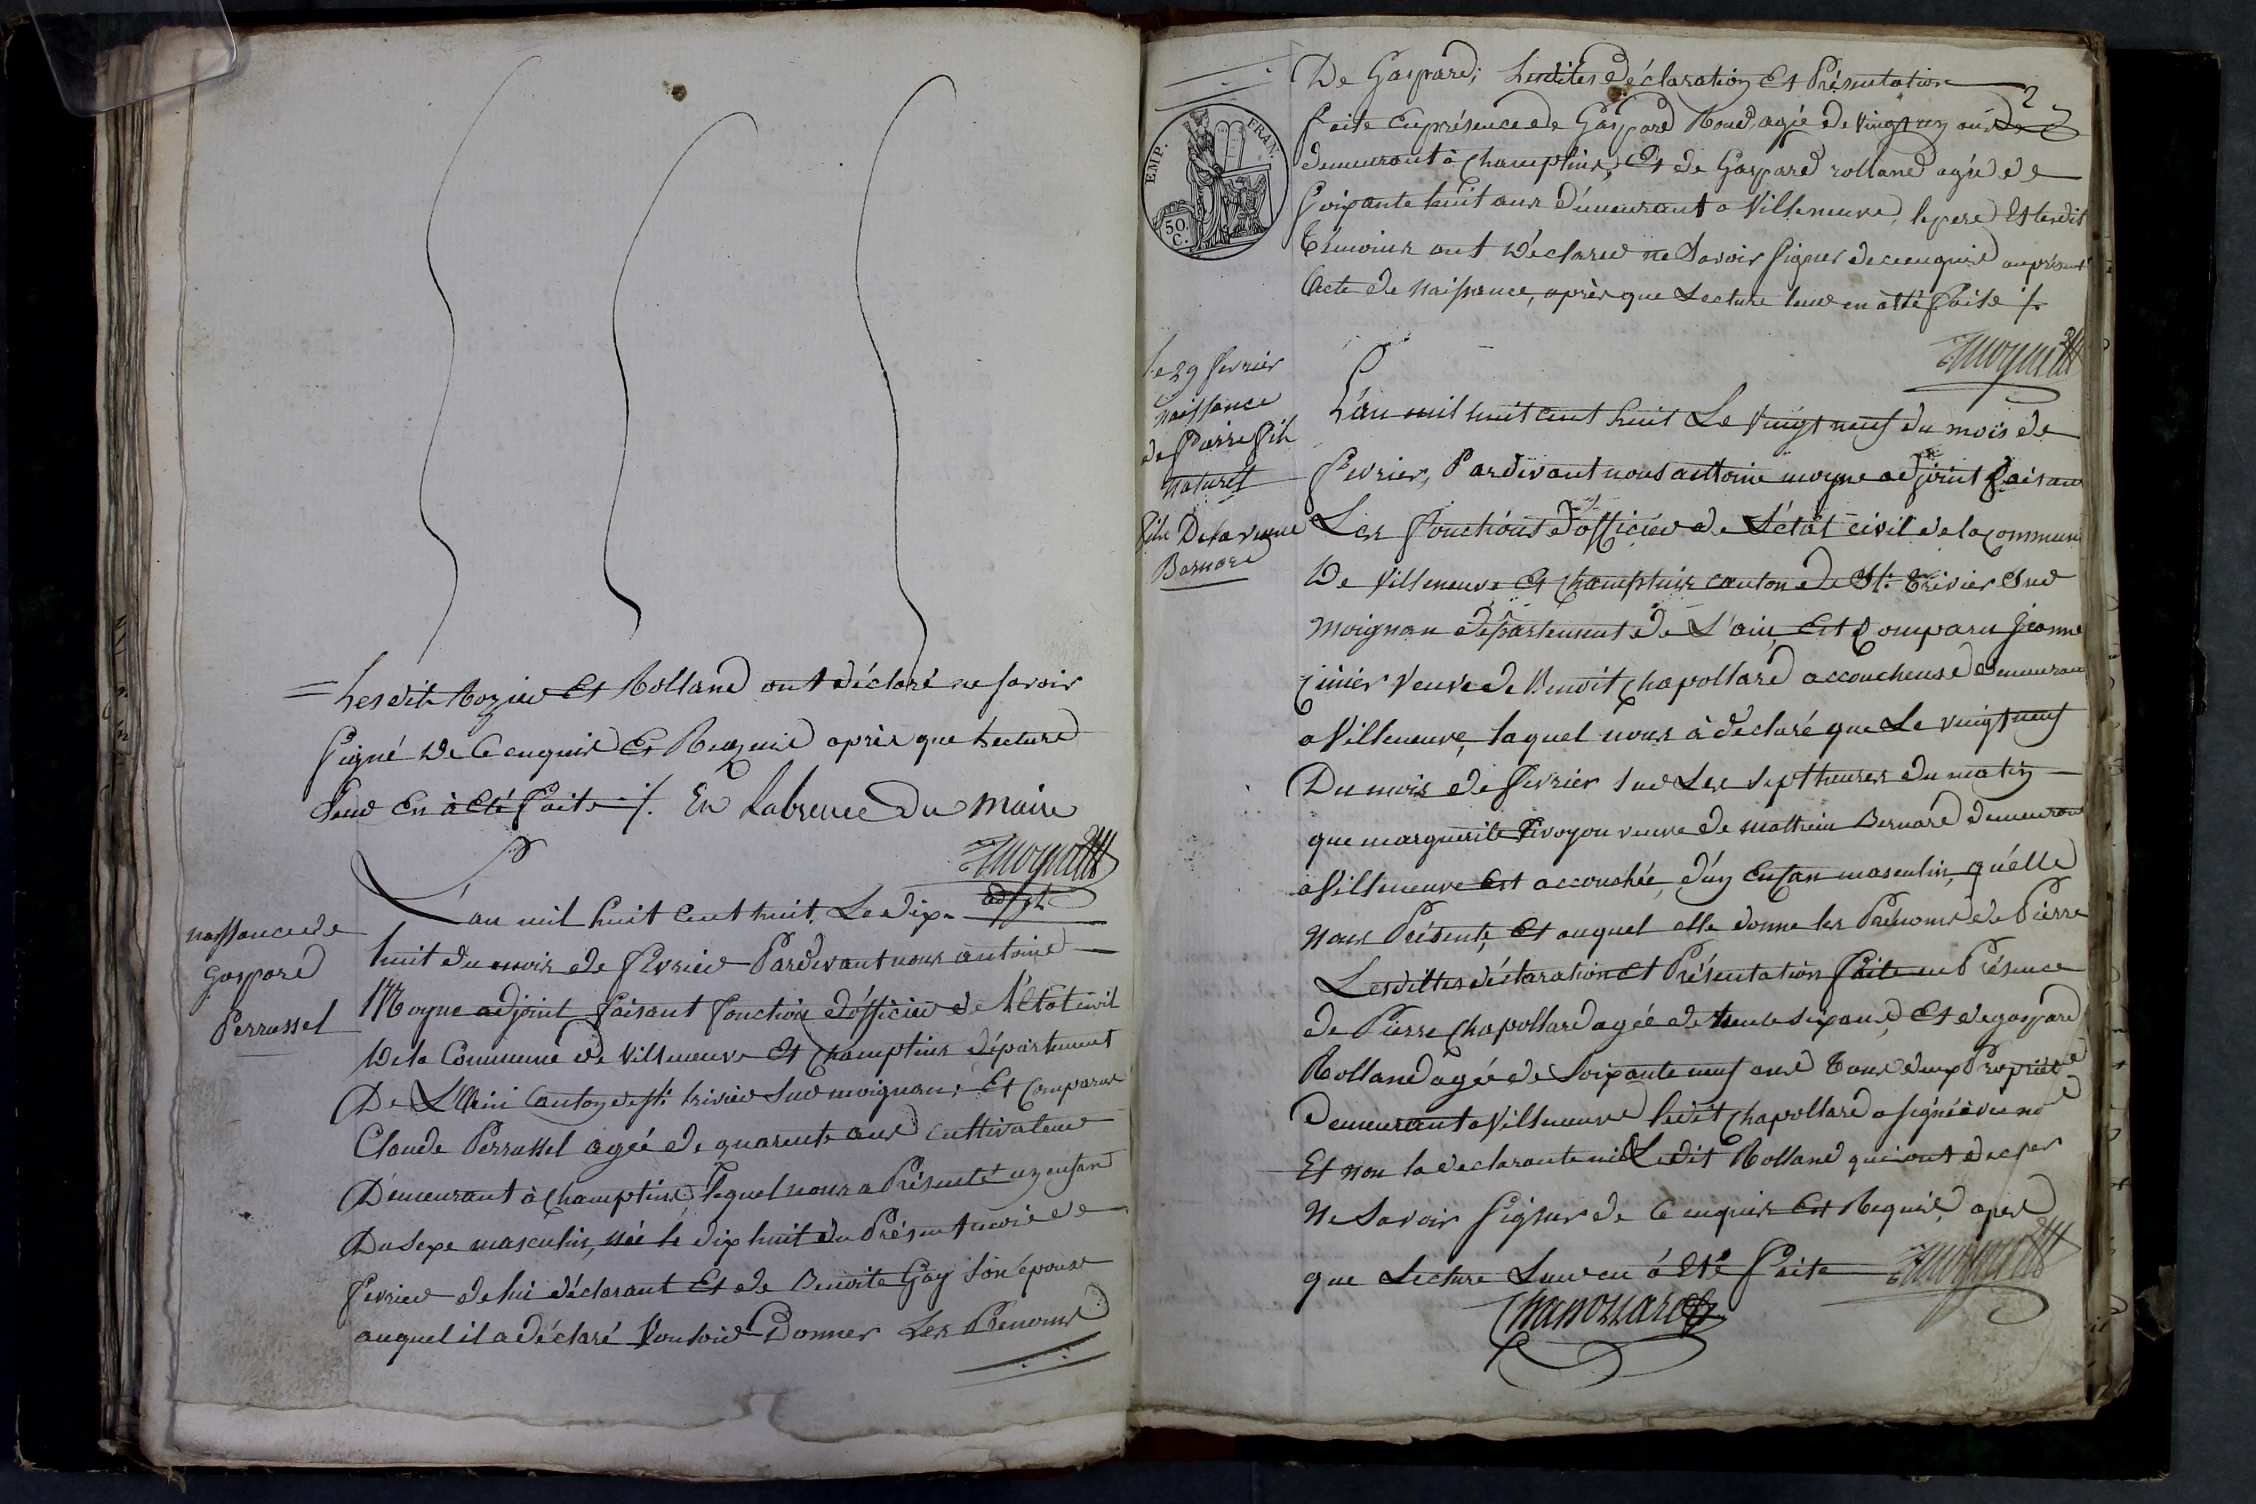 = Lesdit Rozier Et Rolland ont déclaré ne savoir
signé de ce enquis Et Requis après que Lecture
Leur En à été faite ./. En Labsence Du maire
Amoyne
adjt
naissance de
Gaspard
Perrussel
L'an mil huit cent huit Le dix-
huit du mois de fevrier Pardevant nous antoine
Moyne adjoint faisant fonction d'officier de L'état civil
De la Commune de Villeneuve Et Champtins département
De L'Ain Canton de St. trivier sur moignans Et Comparus
Claude Perrussel agée de quarente ans cultivateur
Demeurant à Champtins lequel nous a Présenté un enfant
Du Sexe masculin, née le dix huit du Présent mois de
fevrier de lui déclarant Et de Benoite Gay son épouse
auquel il a déclaré Vouloir Donner Les Prenoms
De Gaspard; Lesdites déclaration Et Présentation
faite en présence de Gaspard Roud agée de vingt un ans
demeurant à Champtins, Et de Gaspard rolland agée de
soixante huit ans demeurant a Villeneuve, le pere Et lesdit
témoins ont Déclaré ne Savoir signer de ce enquis au présent
Acte de naissance, après que Lecture leur en a été faite ./.
Amoyne
EMP. FRAN.
50 C.
2
Le 29 fevrier
naissance
de Pierre fils
naturel
fils De la veuve
Bernard
L'an mil huit cent huit Le vingt neuf du mois de
fevrier, Pardevant nous antoine moyne adjoint faisan
Les fonctions d'officier de L'état civil de la Commune
De Villeneuve Et Champtins canton de St. trivier sur
Moignan département de L'ain Est Comparu Jeanne
Cinier Veuve de Benoit Chapollard accoucheuse demeuran
a Villeneuve, laquel nous à déclaré que Le vingt neuf
Du mois de fevrier sur Les sept heures du matin
que marguerite veuve de mathieu Bernard demeuran
a Villeneuve Est accouchée d'un enfan masculin, qu'elle
nous Présente, Et auquel elle donne les Prénoms de Pierre
Lesdittes déclaration Et Présentation faite en Présence
de Pierre Chapollard agée de trente six ans, Et de gaspard
Rolland agée de soixante neuf ans tous deux Propriét
Demeurant a Villeneuve ledit Chapollard a signé avec no
Et non la declarante ni Ledit Rolland qui ont declar
Ne Savoir signer de ce enquis Et Requis, apre
que Lecture Leur en à Eté faite
Amoyne
Chapollard